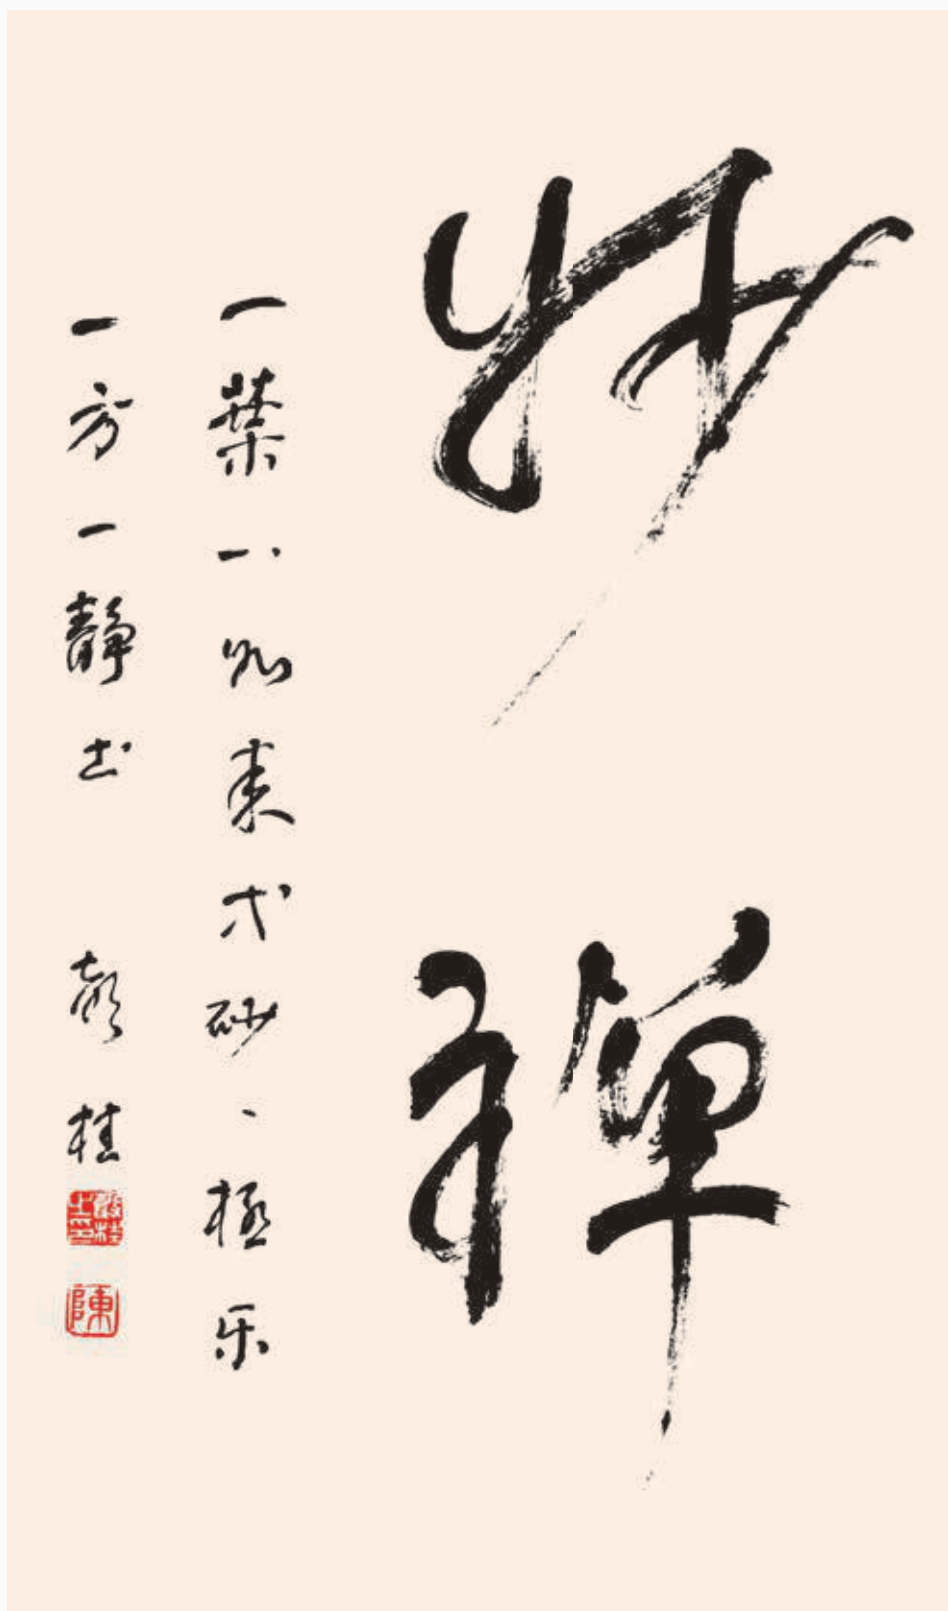 妙禪
一葉一如来一砂一極乐
一方一静土 桂
陳